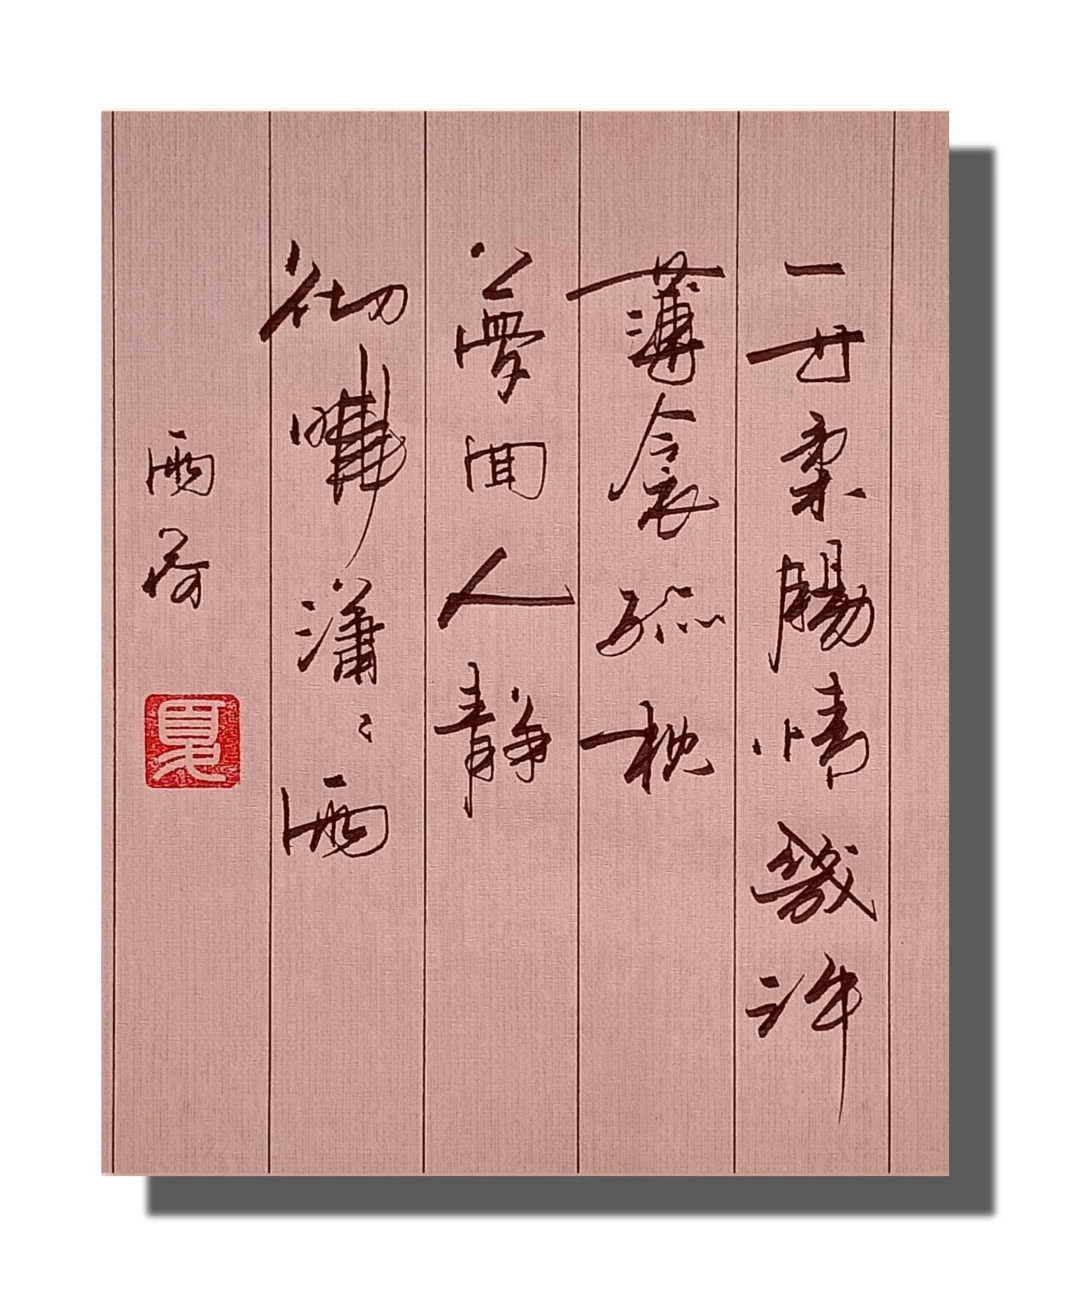 一寸柔腸情幾許
薄衾孤枕
夢回人靜
徹曉瀟瀟雨
雨荷
夏